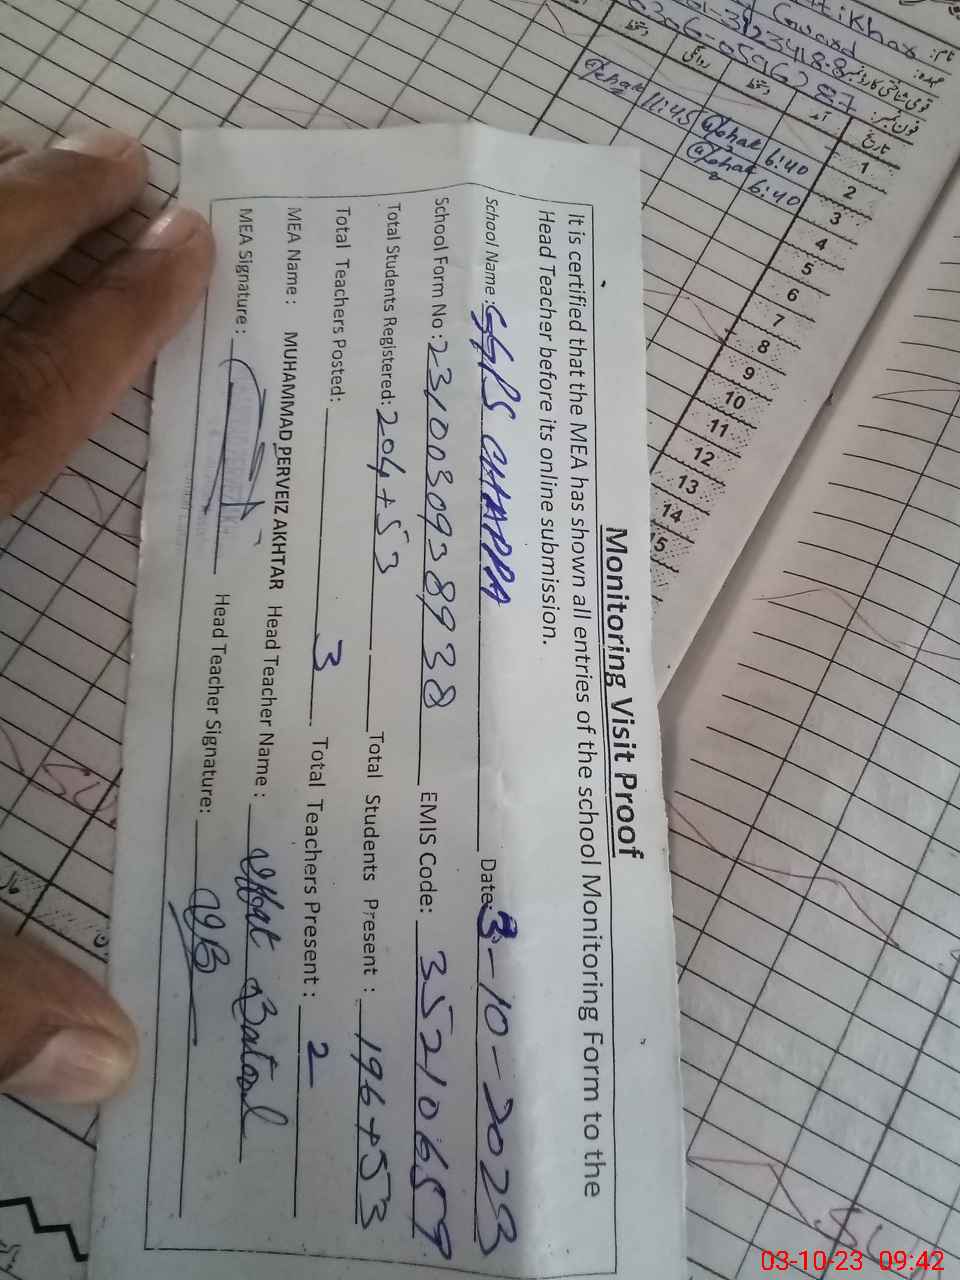 Monitoring Visit Proof
It is certified that the MEA has shown all entries of the school Monitoring Form to the
Head Teacher before its online submission.
School Name: GGPS CHAPPA Date: 3-10-2023
School Form No: 23100309389938 EMIS Code: 35210659
Total Students Registered: 204+53 Total Students Present : 196+53
Total Teachers Posted: 3 Total Teachers Present : 2
MEA Name : MUHAMMAD PERVEIZ AKHTAR Head Teacher Name : Batool
MEA Signature : Head Teacher Signature:
نام:
عہدہ: Guard
قومی شناختی کارڈ نمبر
فون نمبر:
تاریخ آمد دستخط روانگی دستخط
1 6:40 11:45
2 6:40
3
4
5
6
7
8
9
10
11
12
13
14
15
03-10-23 09:42